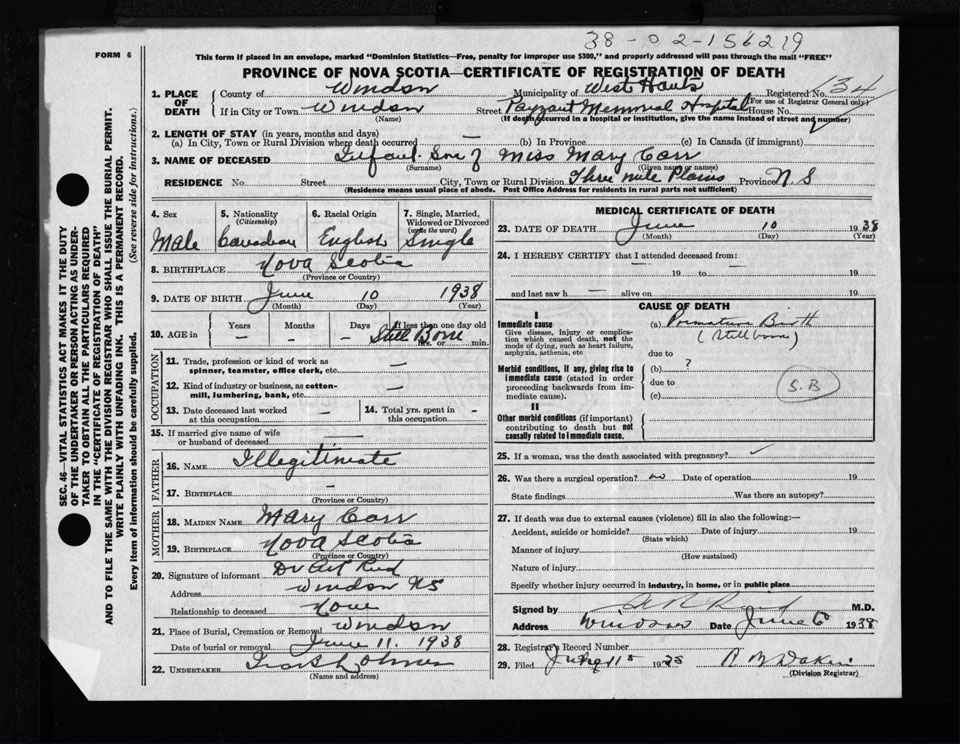 38-02-156219
FORM 6
This form if placed in an envelope, marked "Dominion Statistics—Free, penalty for improper use $300," and properly addressed will pass through the mail "FREE"
PROVINCE OF NOVA SCOTIA—CERTIFICATE OF REGISTRATION OF DEATH
1. PLACE OF DEATH County of Windsor Municipality of West Hants Registered No. 134
(For use of Registrar General only)
If in City or Town Windsor Street Payzant Memorial Hospital House No.
(Name) (If death occurred in a hospital or institution, give the name instead of street and number)
2. LENGTH OF STAY (in years, months and days)
(a) In City, Town or Rural Division where death occurred — (b) In Province (c) In Canada (if immigrant)
3. NAME OF DECEASED Infant Son of Miss Mary Carr
(Surname) (Given name or names)
RESIDENCE No. Street City, Town or Rural Division Three Mile Plains Province N.S
(Residence means usual place of abode. Post Office Address for residents in rural parts not sufficient)
4. Sex Male
5. Nationality (Citizenship) Canadian
6. Racial Origin English
7. Single, Married, Widowed or Divorced (write the word) Single
8. BIRTHPLACE Nova Scotia
(Province or Country)
9. DATE OF BIRTH June 10 1938
(Month) (Day) (Year)
10. AGE in Years Months Days If less than one day old
— — — Still Born hrs. or min.
OCCUPATION
11. Trade, profession or kind of work as spinner, teamster, office clerk, etc. —
12. Kind of industry or business, as cotton-mill, lumbering, bank, etc. —
13. Date deceased last worked at this occupation —
14. Total yrs. spent in this occupation -
15. If married give name of wife or husband of deceased —
FATHER
16. NAME Illegitimate
17. BIRTHPLACE —
(Province or Country)
MOTHER
18. MAIDEN NAME Mary Carr
19. BIRTHPLACE Nova Scotia
(Province or Country)
20. Signature of informant Dr Reid
Address Windsor NS
Relationship to deceased None
21. Place of Burial, Cremation or Removal Windsor
Date of burial or removal June 11. 1938
22. UNDERTAKER
(Name and address)
MEDICAL CERTIFICATE OF DEATH
23. DATE OF DEATH June 10 1938
(Month) (Day) (Year)
24. I HEREBY CERTIFY that I attended deceased from:
— 19 to — 19
and last saw h — alive on 19
CAUSE OF DEATH
I
Immediate cause
Give disease, injury or complication which caused death, not the mode of dying, such as heart failure, asphyxia, asthenia, etc
(a) Premature Birth
(Stillborn)
due to
Morbid conditions, if any, giving rise to immediate cause (stated in order proceeding backwards from immediate cause).
(b) ?
due to
(c)
S.B
II
Other morbid conditions (if important) contributing to death but not causally related to immediate cause.
25. If a woman, was the death associated with pregnancy?
26. Was there a surgical operation? no Date of operation 19
State findings Was there an autopsy?
27. If death was due to external causes (violence) fill in also the following:—
Accident, suicide or homicide? Date of injury 19
(State which)
Manner of injury
(How sustained)
Nature of injury
Specify whether injury occurred in industry, in home, or in public place
Signed by Reid M.D.
Address Windsor Date June 1938
28. Registrar's Record Number
29. Filed 19
(Division Registrar)
SEC. 46—VITAL STATISTICS ACT MAKES IT THE DUTY
OF THE UNDERTAKER OR PERSON ACTING AS UNDER-
TAKER TO OBTAIN ALL THE PARTICULARS REQUIRED
IN THE "CERTIFICATE OF REGISTRATION OF DEATH"
AND TO FILE THE SAME WITH THE DIVISION REGISTRAR WHO SHALL ISSUE THE BURIAL PERMIT.
WRITE PLAINLY WITH UNFADING INK. THIS IS A PERMANENT RECORD.
Every item of information should be carefully supplied. (See reverse side for instructions.)